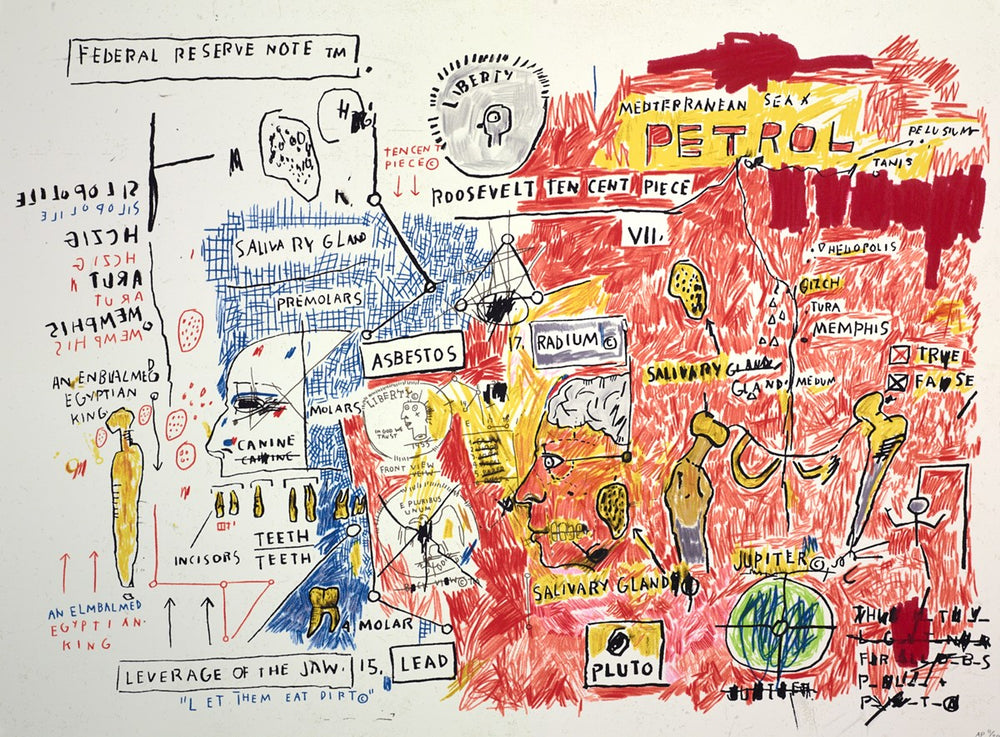 FEDERAL RESERVE NOTE TM
LIBERTY
TENCENT
PIECE©
ROOSEVELT TEN CENT PIECE
MEDTERRANEAN SEA
PETROL
PELUSIUM
TANIS
SILOPOLILE
SILOPOLILE
HCZIG
HCZIG
ARUT
ARUT
MEMPHIS
MEMPHIS
SALIVARY GLAND
PREMOLARS
ASBESTOS
VII.
17, RADIUM ©
HELOPOLIS
GIZCH
TURA
MEMPHIS
TRUE
FALSE
AN ENBUALMED
EGYPTIAN
KING
MOLARS
CANINE
CANINE
LIBERTY©
IN GOD WE
TRUST
FRONT VIEW
VEIW
E PLURIBUS
UNUM
SALIVARY GLAND
GLAND
MEDUM
INCISORS
TEETH
TEETH
AN ELMBALMED
EGYPTIAN.
KING
MOLAR
SALIVARY GLAND
JUPITER
PLUTO
LEVERAGE OF THE JAW.
15, LEAD
"LET THEM EAT DIRT©"
AP